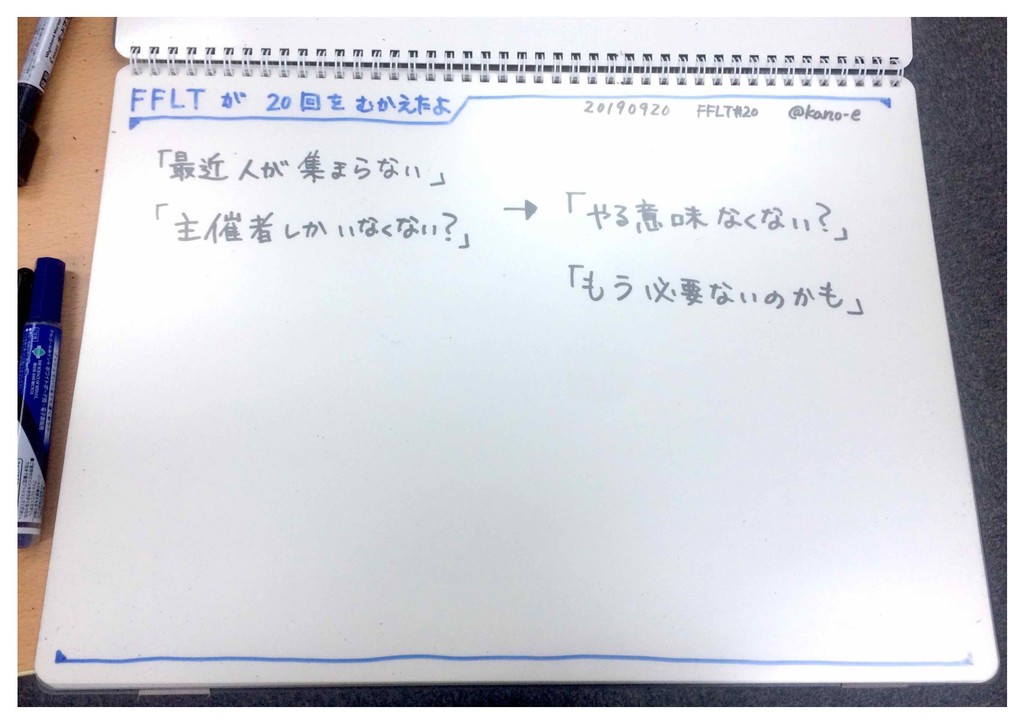 FFLTが 20回をむかえたよ
20190920 FFLT#20 @kano-e
「最近人が集まらない」
「主催者しかいなくない?」
→ 「やる意味なくない?」
「もう必要ないのかも」